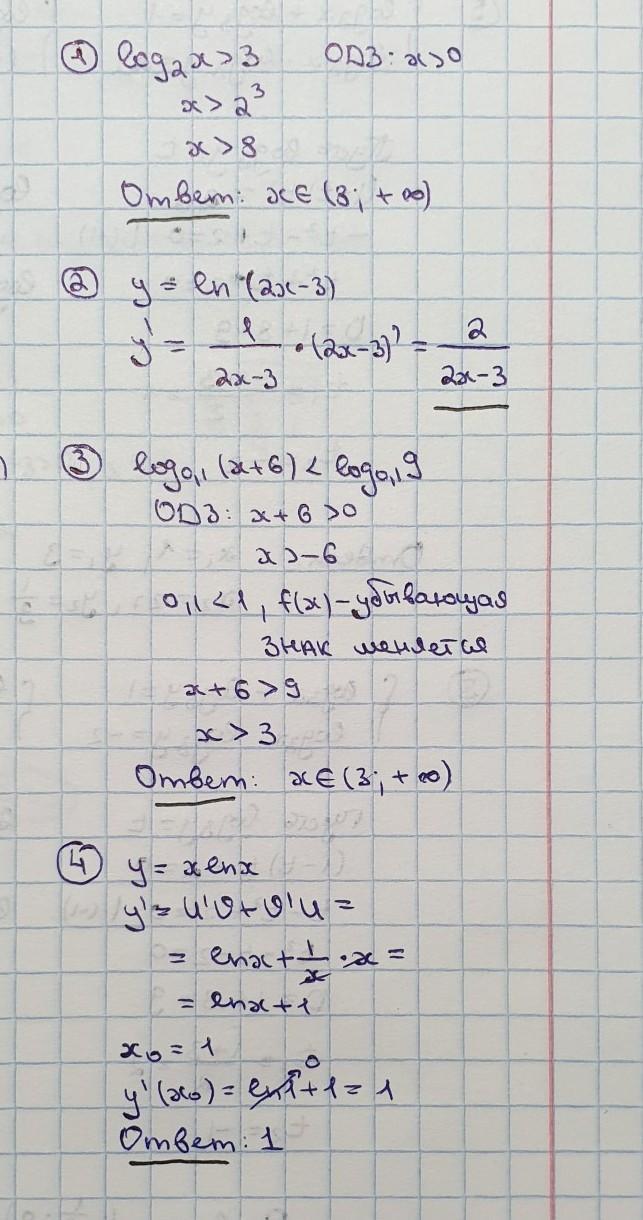 ① log₂x > 3 ОДЗ: x>0
x > 2³
x > 8
Ответ: x∈(3; +∞)
② y = ln (2x-3)
y' = 1/(2x-3) · (2x-3)' = 2/(2x-3)
③ log₀,₁ (x+6) < log₀,₁ 9
ОДЗ: x+6 >0
x > -6
0,1 < 1, f(x) - убывающая
знак меняется
x+6 > 9
x > 3
Ответ: x∈(3; +∞)
④ y = xlnx
y' = u'v + v'u =
= lnx + 1/x · x =
= lnx + 1
x₀ = 1
0
y'(x₀) = ln1 + 1 = 1
Ответ: 1